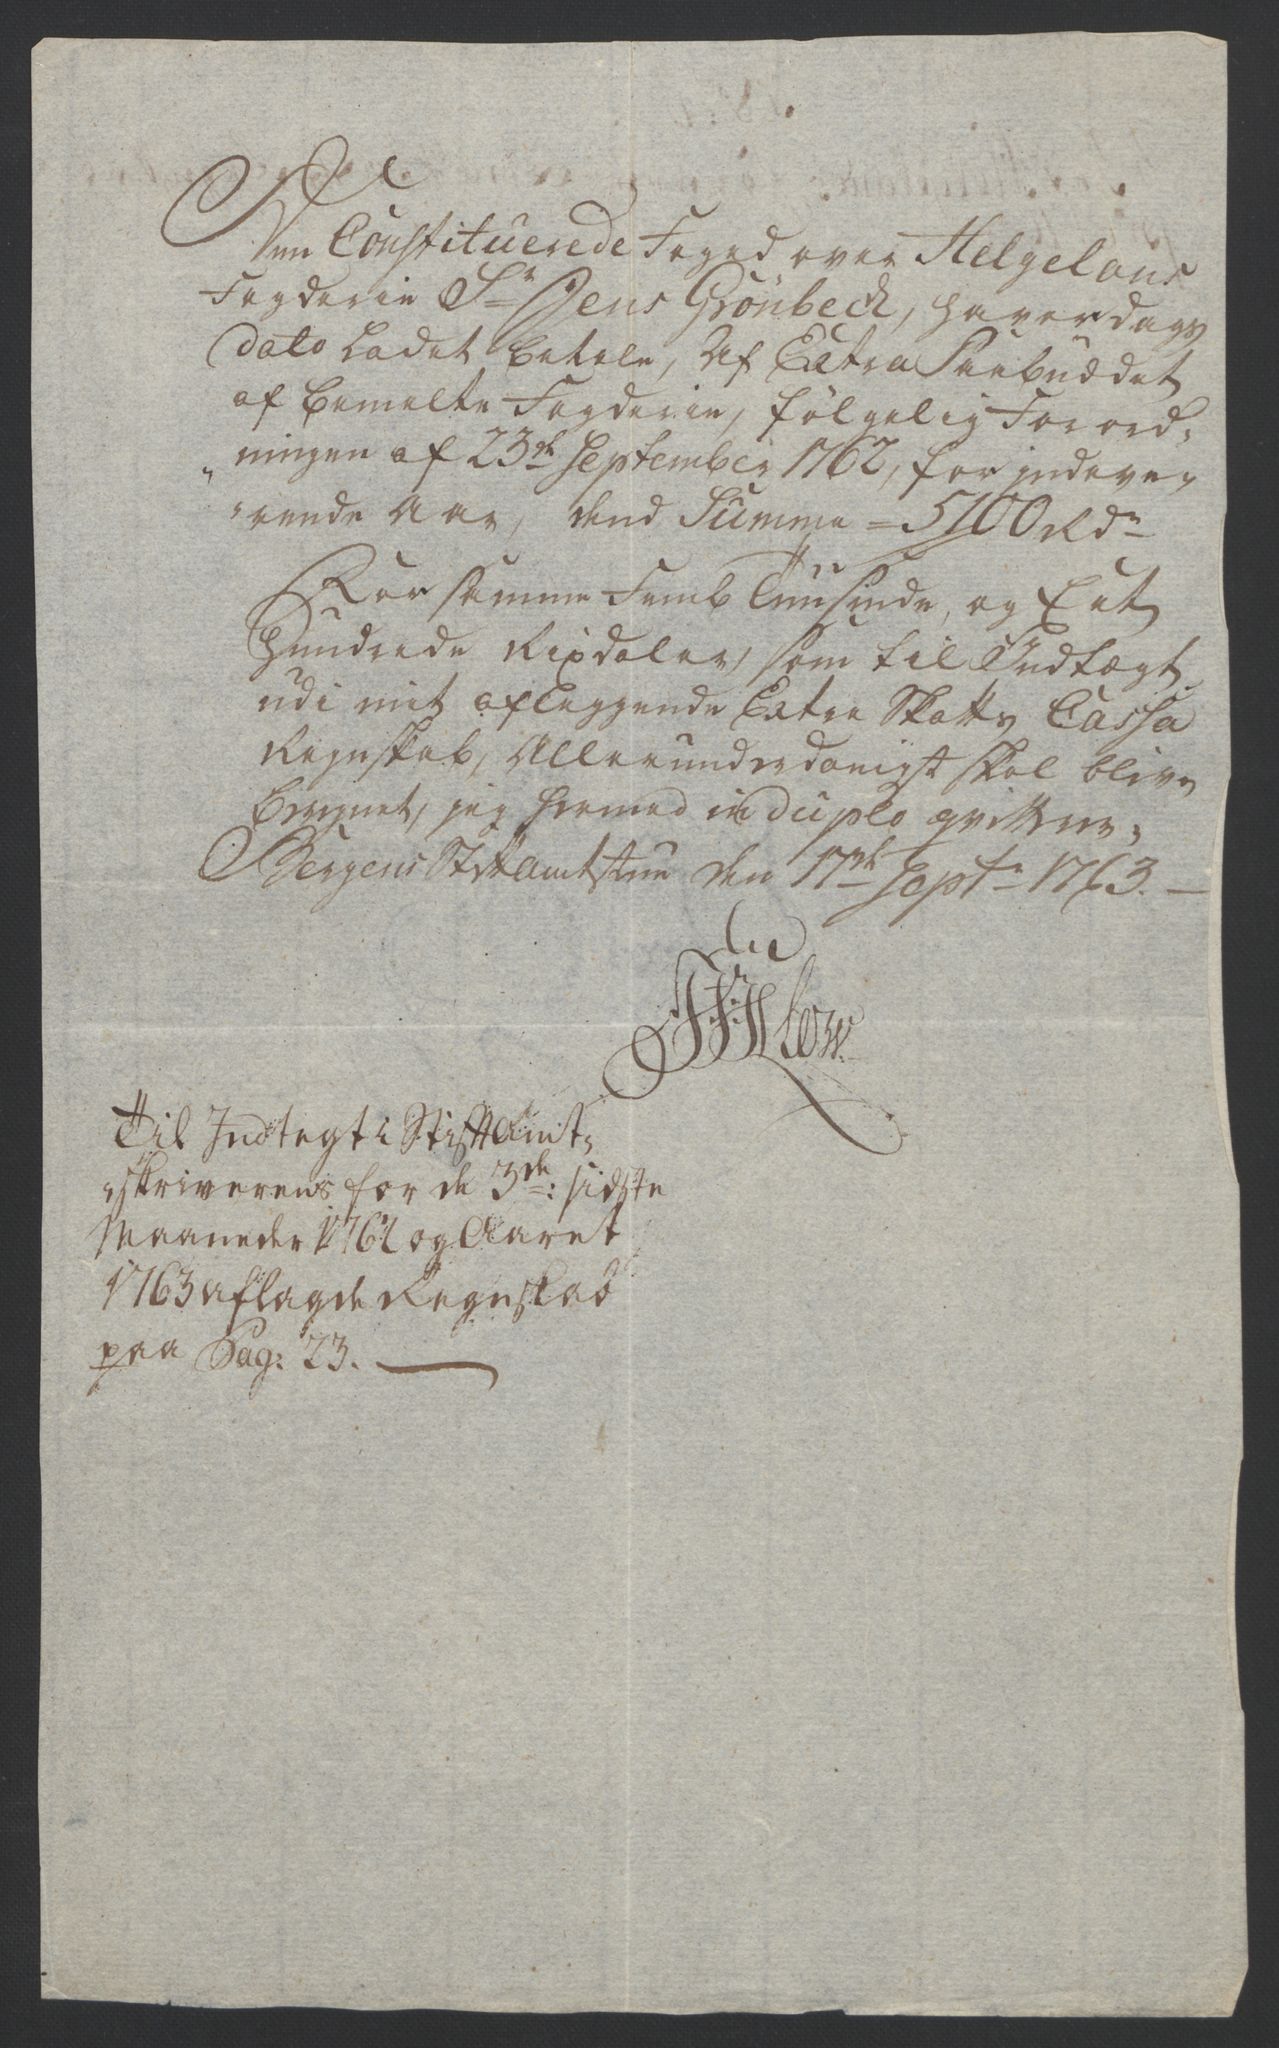 Den Constituerede Foged over Helgelans
Fogderie Sr Jens Grönbech, haver dags
dato ladet betale, Af Extra Paabuddet
af bemelte Fogderie, følgelig Forord¬
ningen af 23de September 1762, for indevæ¬
rende Aar, dend Summa = 5100 Rdr
For samme Femb Tuusinde, og Eet
Hundrede Rixdaler, som til Indtægt
udi mit aflæggende Extra Skatts Cassa
Regnskab, Allerunderdanigst skal blive
beregnet, jeg hermed in duplo qvitterer,
Bergens Stiftamtstue den 17de Septr 1763. —
Til Indtegt i StiftAmt¬
skriverens for de 3de: sidste
Maaneder 1762 og Aaret
1763 aflagde Regnskab
paa Pag: 23. —